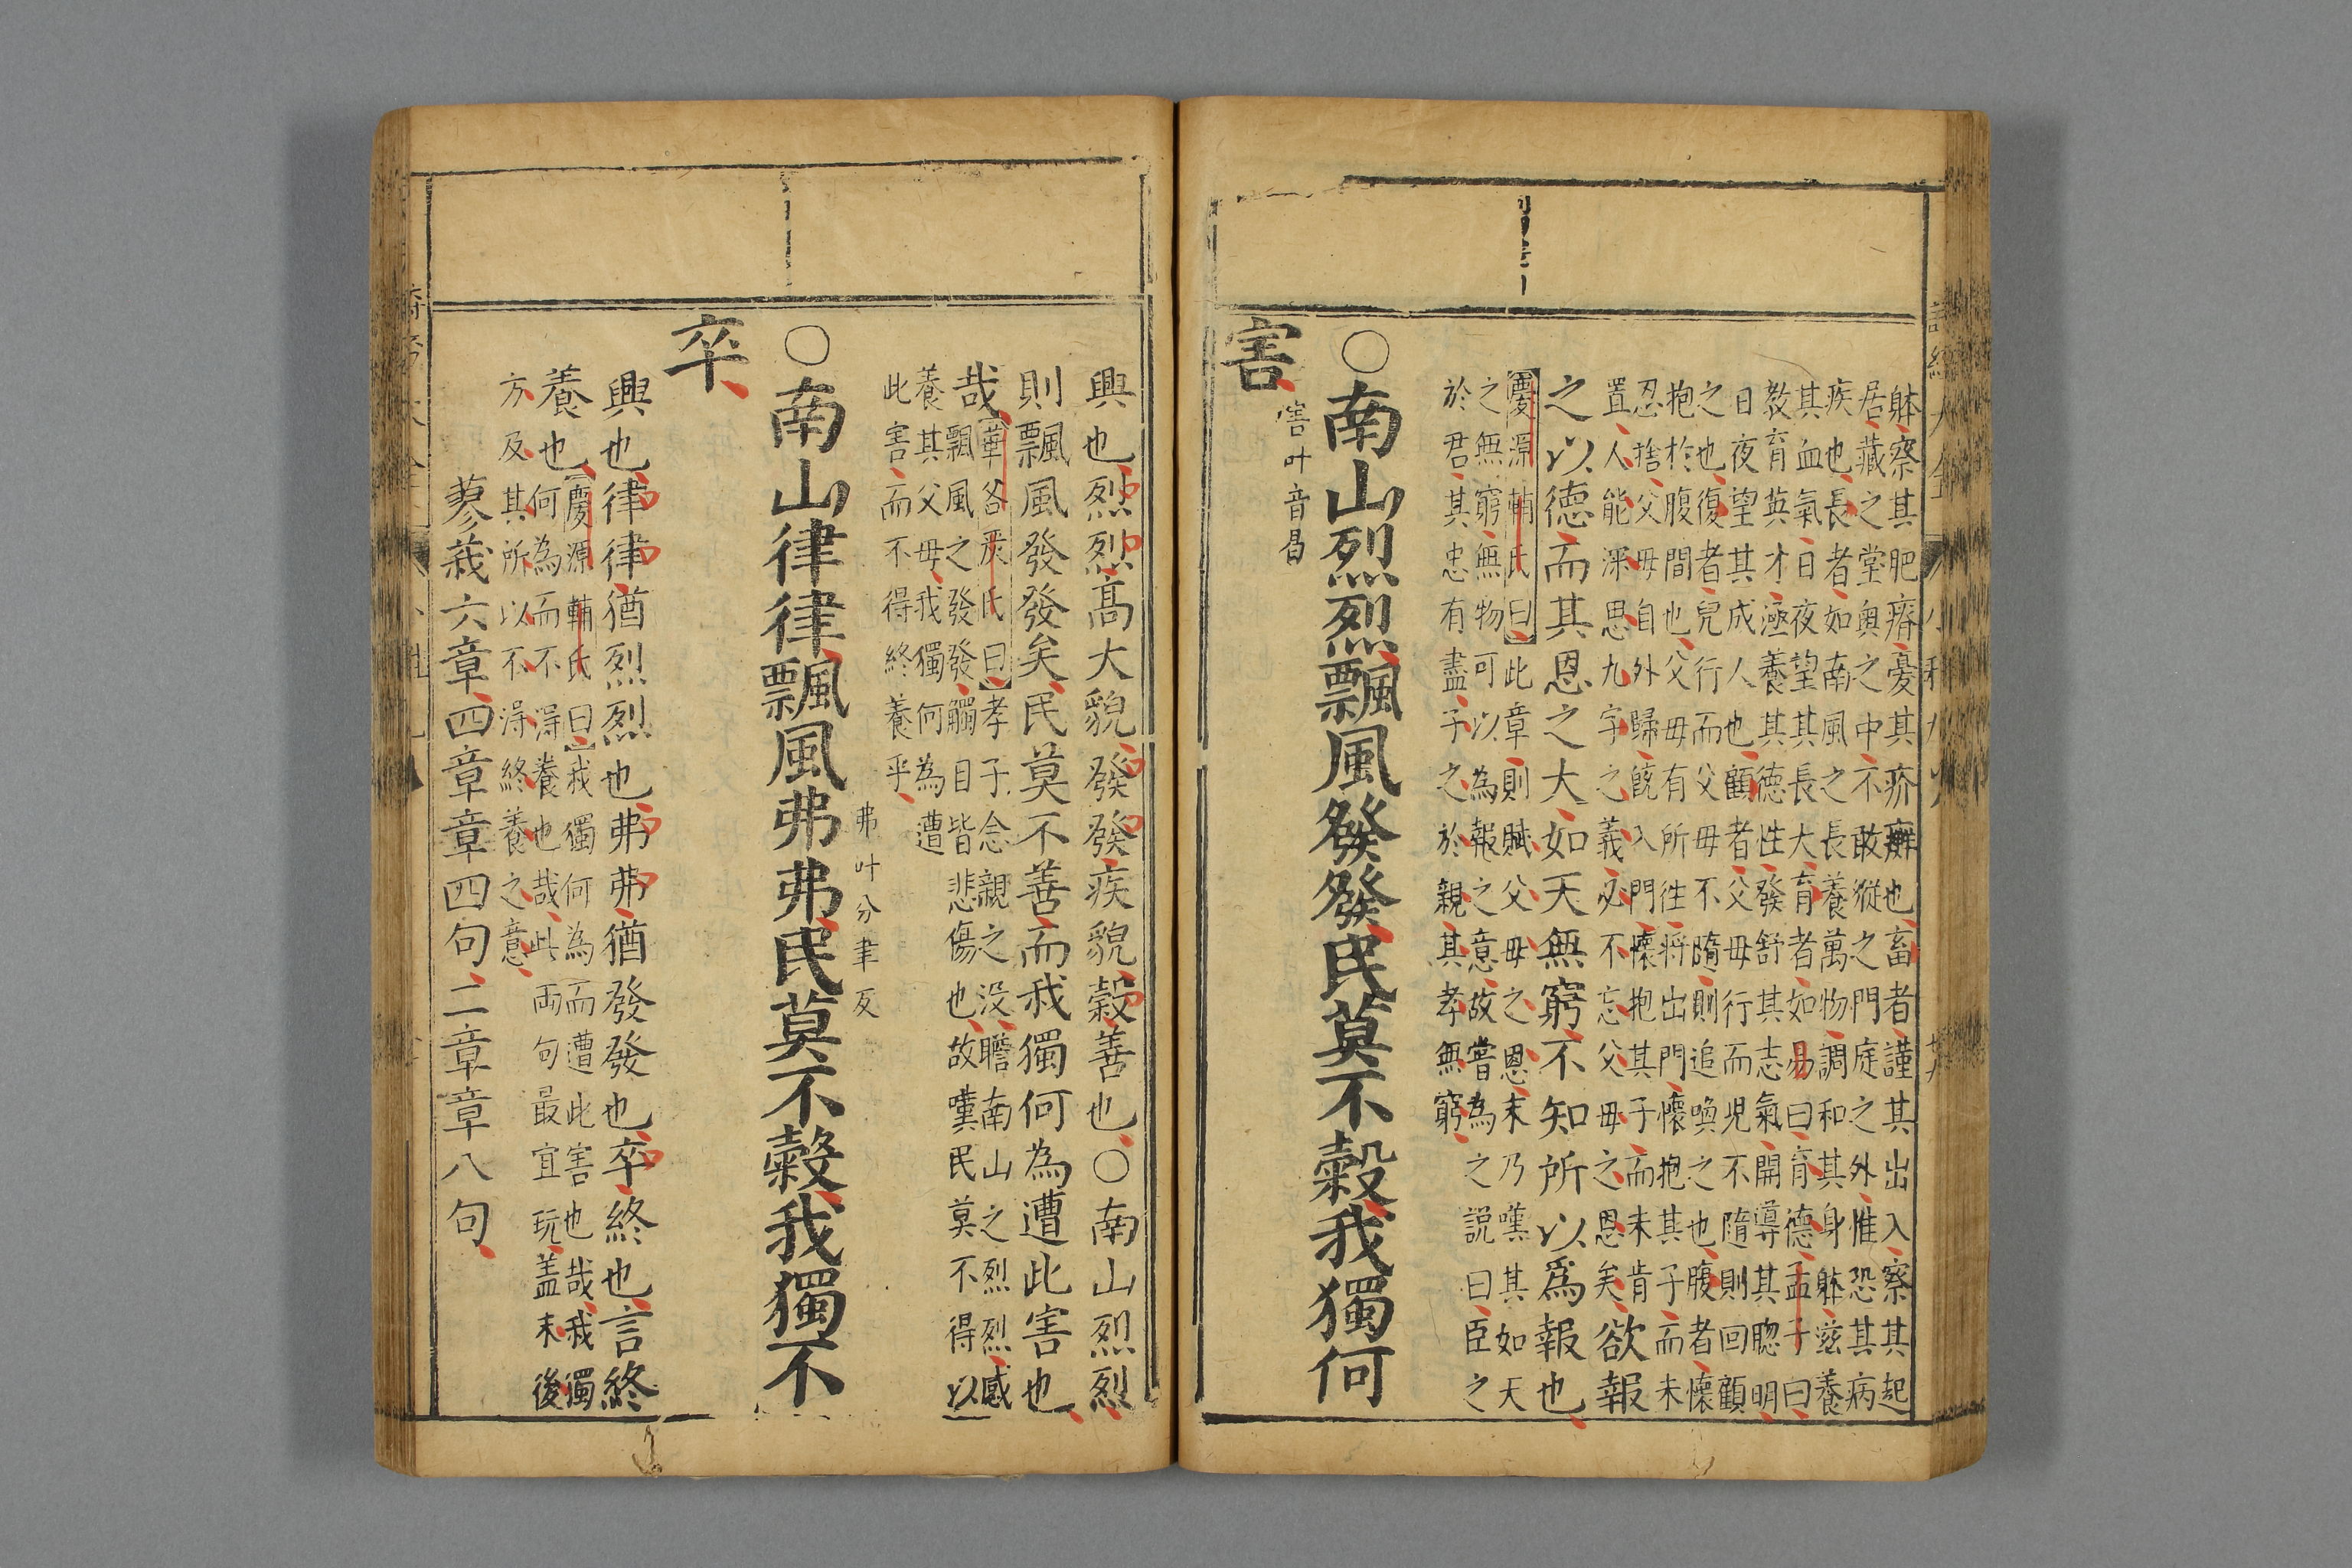 躰察其肥瘠憂其疥癬也畜者謹其出入察其起
居藏之堂奥之中不敢縱之門庭之外惟恐其病
疾也長者如南風之長養萬物調和其身躰滋養
其血氣日夜望其長大育者如昜曰育德孟子曰
敎育英才涵養其德性發舒其志氣開導其聦明
日夜望其成人也顧者父毋行而児不隨則回顧
之也復者兒行而父毋不隨則追喚之也腹者懷
抱於腹間也父毋有所往将出門懷抱其子而未
忍捨父毋自外歸旣入門懷抱其子而未肯
置人能深思九字之義必不忘父毋之恩矣欲報
之以德而其恩之大如天無窮不知所以爲報也
慶源輔氏曰此章則賦父毋之恩末乃嘆其如天
之無窮無物可以為報之意故嘗為之説曰臣之
於君其忠有盡子之於親其孝無窮
○南山烈烈飄風發發民莫不穀我獨何
害害叶音曷
興也烈烈髙大貌發發疾貌穀善也○南山烈烈
則飄風發發矣民莫不善而我獨何為遭此害也
哉華谷嚴氏曰孝子念親之没瞻南山之烈烈感
飄風之發發觸目皆悲傷也故嘆民莫不得以
養其父毋我獨何為遭
此害而不得終養乎
○南山律律飄風弗弗民莫不穀我獨不
弗叶分聿反
卒
興也律律猶烈烈也弗弗猶發發也卒終也言終
養也慶源輔氏曰我獨何為而遭此害也哉我獨
何為而不得養也哉此両句最宜玩盖末後
方及其所以不得終養之意
蓼莪六章四章章四句二章章八句